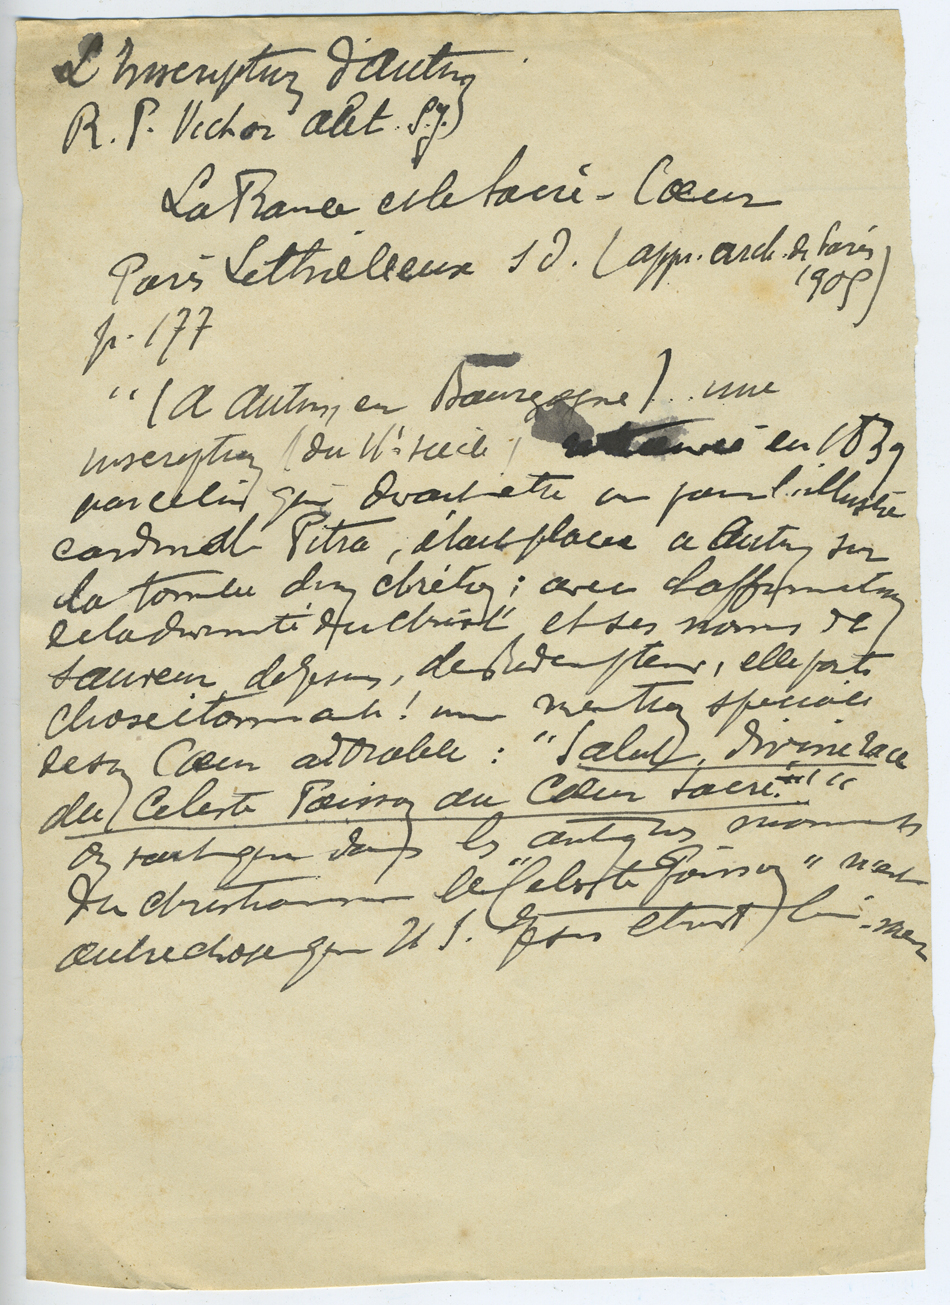 L'Inscription d'Autun
R. P. Victor Alet. S.J.
La France et le Sacré-Coeur
Paris Lethielleux s d. (appr. arch. de Paris
1905)
p. 177
"(A Autun, en Bourgogne) .. une
inscription (du II° siècle) retrouvée en 1839
par celui qui devait être un jour l'illustre
cardinal Pitra, était placée à Autun sur
la tombe d'un chrétien; avec l'affirmation
de la divinité du Christ et ses noms de
sauveur, de Jesus, de Rédempteur, elle porte
chose étonnante! une mention spéciale
de son Coeur adorable : "Salut, divine race
du Celeste Poisson au Coeur sacré!""
On sait que dans les antiques monuments
du christianisme le "Celeste Poisson" n'est
autre chose que N S. Jesus Christ lui-meme